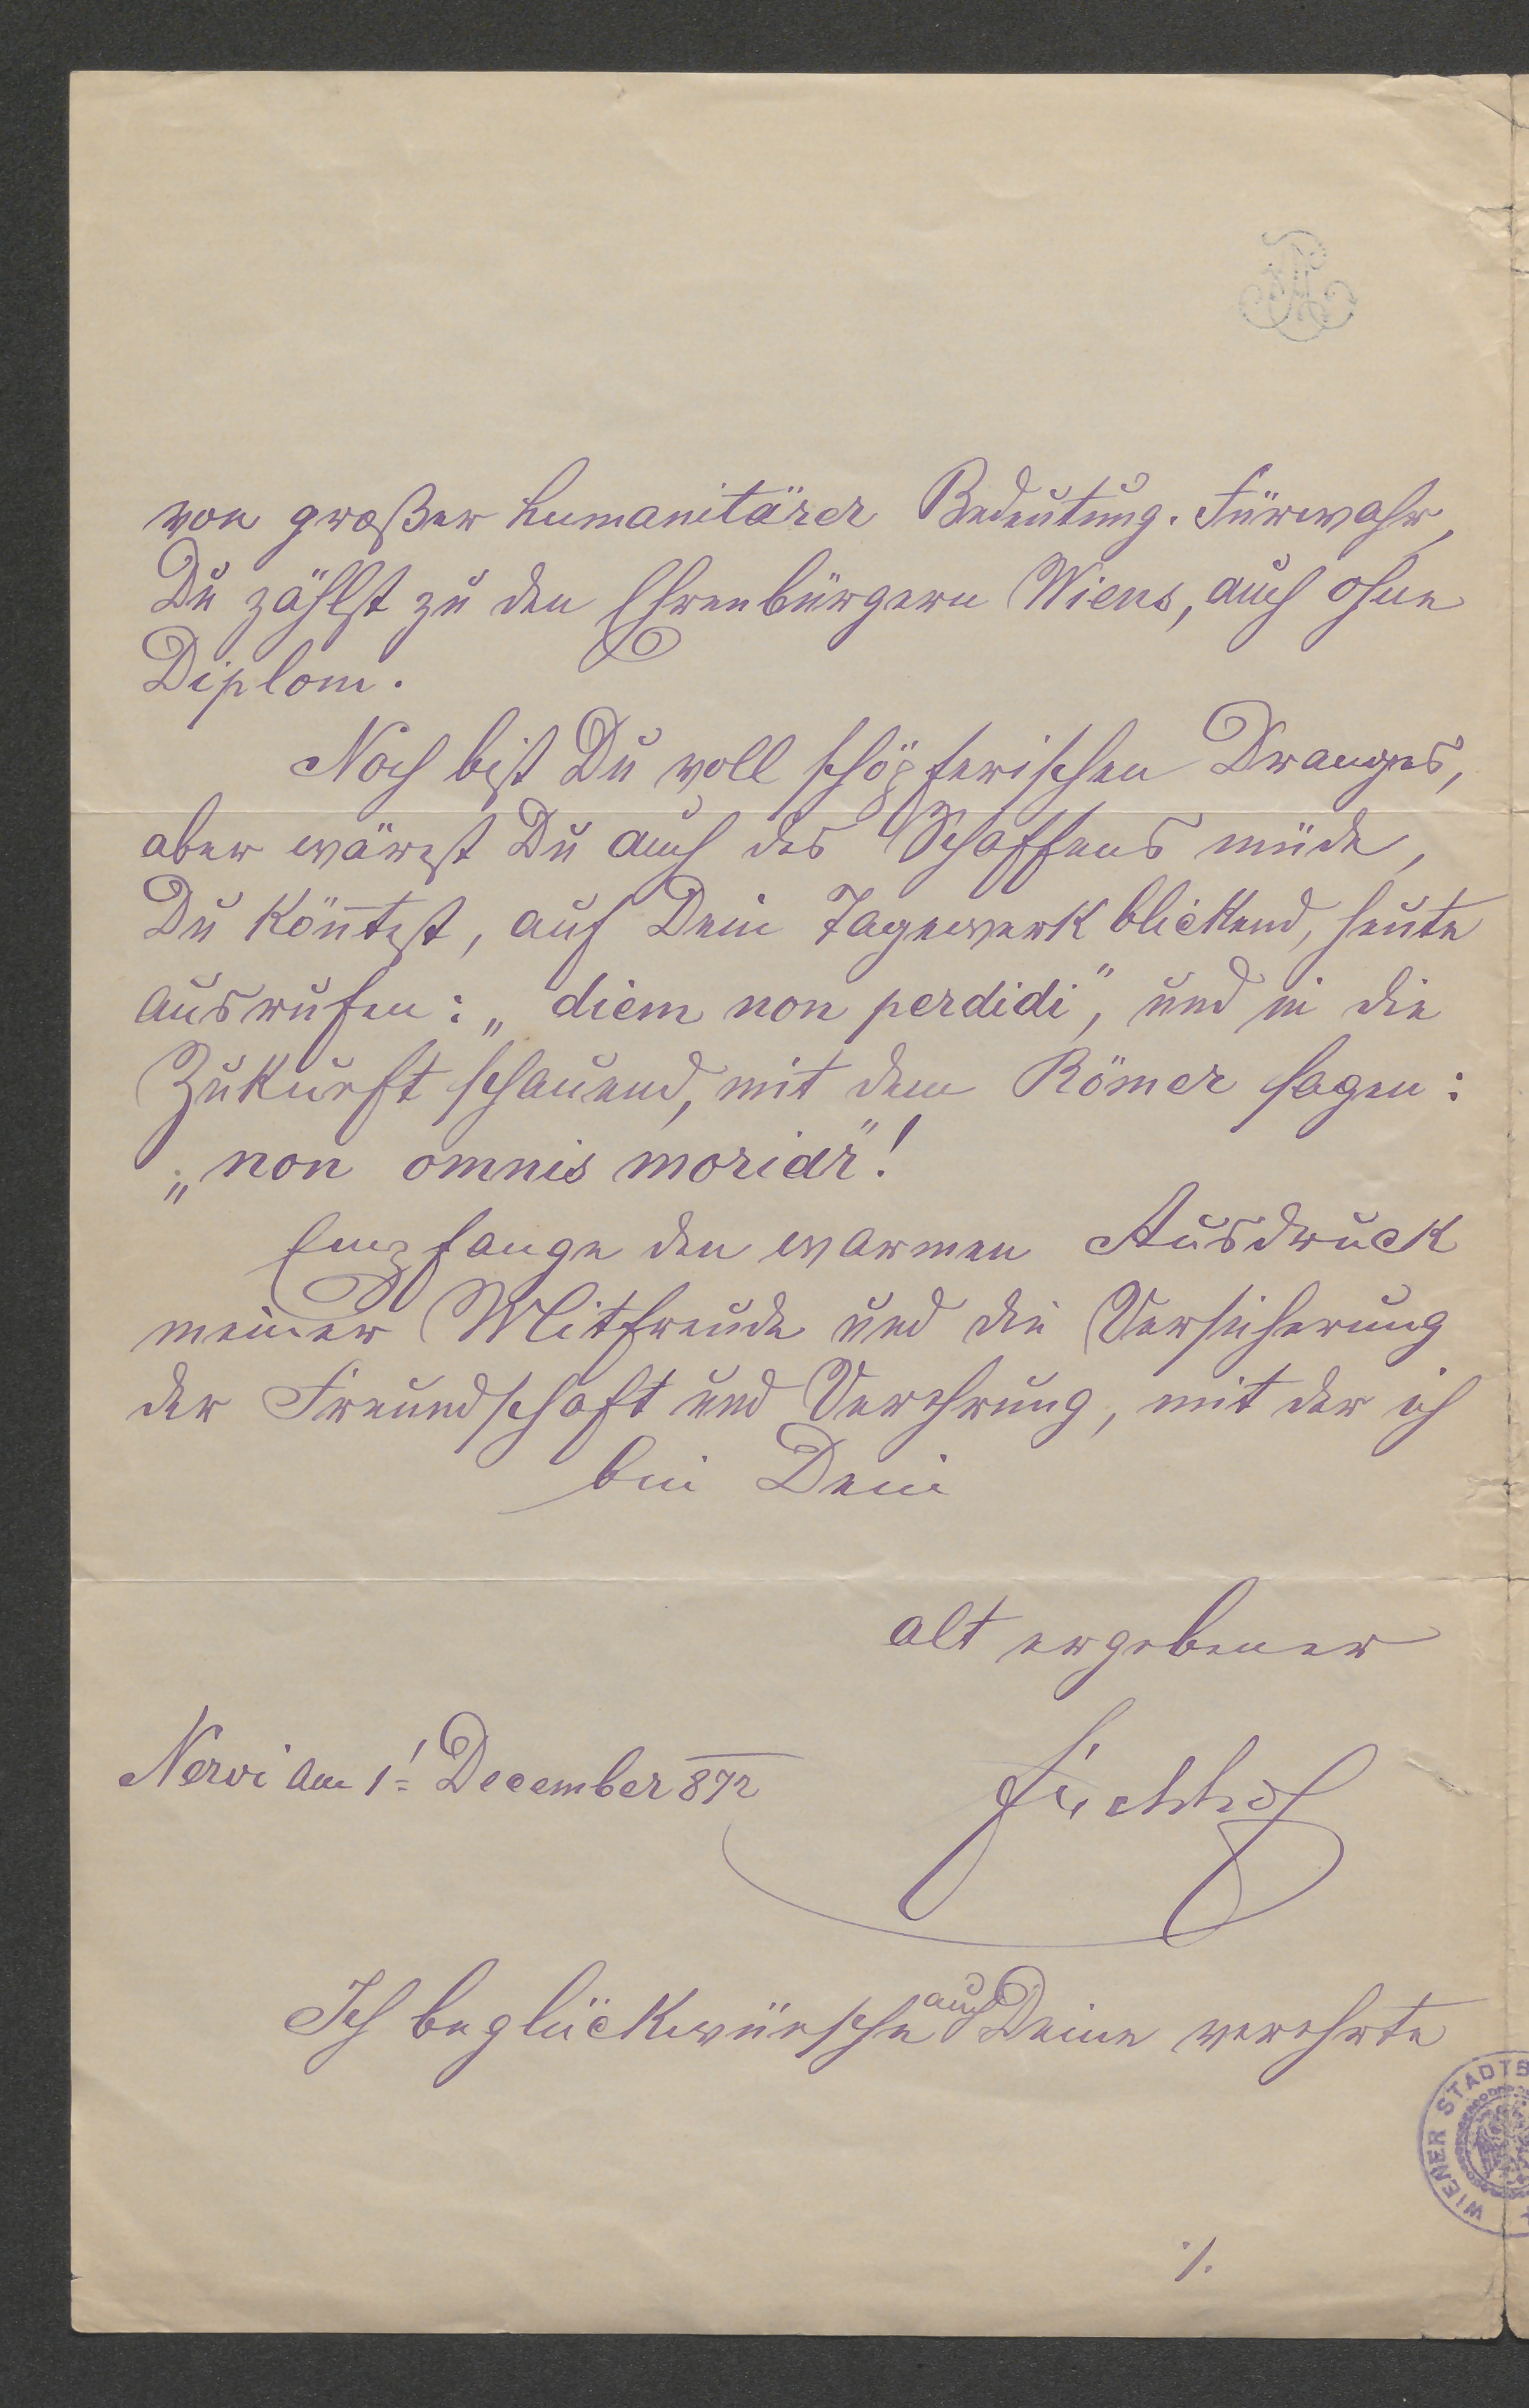 von großer humanitärer Bedeutung. Fürwahr,
Du zählst zu den Ehrenbürgern Wiens, auch ohne
Diplom.
Noch bist Du voll schöpferischen Dranges,
aber wärest Du auch des Schaffens müde,
Du kön̄test, auf Dein Tagewerk blickend, heute
ausrufen: „diem non perdidi", und in die
Zukunft schauend, mit dem Römer sagen:
„non omnis moriar"!
Empfange den warmen Ausdruck
meiner Mitfreude und die Versicherung
der Freundschaft und Verehrung, mit der ich
bin Dein
alt ergebener
Nervi am 1. December 872
Fischhof
Ich beglückwünsche auch Deine verehrte
WIENER STADTB
./.